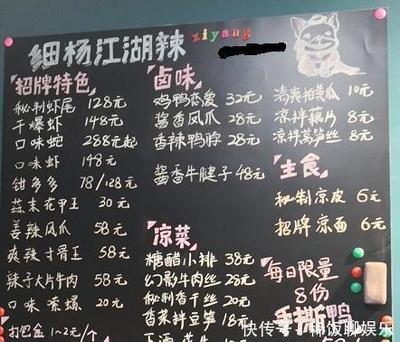 细杨江湖辣
ziyang
招牌特色
秘制虾尾 128元
干爆虾 148元
口味蛇 288元起
口味虾 148元
钳多多 78/128元
蒜末花甲王 30元
姜辣凤爪 58元
爽辣寸骨王 58元
辣子大片牛肉 58元
口味嗦螺 20元
打包盒1~2元/个
卤味
鸡鸭恋爱 32元
酱香凤爪 28元
香辣鸭脖 28元
酱香牛腱子 48元
凉菜
糖醋小排 38元
幻影牛肉丝 28元
秘制香干丝 20元
香菜拌豆笋 18元
清爽拍黄瓜 10元
凉拌藕片 8元
凉拌莴笋丝 8元
主食
秘制凉皮 6元
招牌凉面 6元
每日限量
8份
手撕鸭
快传号/韩饭聊娱乐